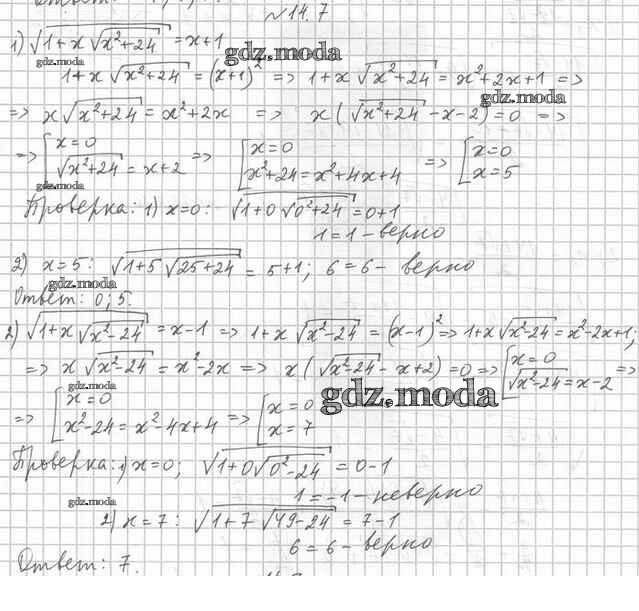 №14.7
1) √(1+x√(x²+24)) = x+1
gdz.moda
gdz.moda
1+x√(x²+24) = (x+1)² => 1+x√(x²+24) = x²+2x+1 =>
gdz.moda
=> x√(x²+24) = x²+2x => x(√(x²+24)-x-2)=0 =>
=> [x=0 √(x²+24)=x+2 => [x=0 x²+24=x²+4x+4 => [x=0 x=5
gdz.moda
Проверка: 1) x=0: √(1+0√(0²+24))=0+1
1=1 - верно
2) x=5: √(1+5√(25+24)) = 5+1; 6=6 - верно
gdz.moda
Ответ: 0; 5.
2) √(1+x√(x²-24)) = x-1 => 1+x√(x²-24) = (x-1)² => 1+x√(x²-24) = x²-2x+1;
=> x√(x²-24) = x²-2x => x(√(x²-24)-x+2)=0 => [x=0 √(x²-24)=x-2 =>
gdz.moda
gdz.moda
=> [x=0 x²-24=x²-4x+4 => [x=0 x=7
Проверка: 1) x=0; √(1+0√(0²-24)) = 0-1
1=-1 - неверно
gdz.moda
2) x=7: √(1+7√(49-24)) = 7-1
6=6 - верно
Ответ: 7.